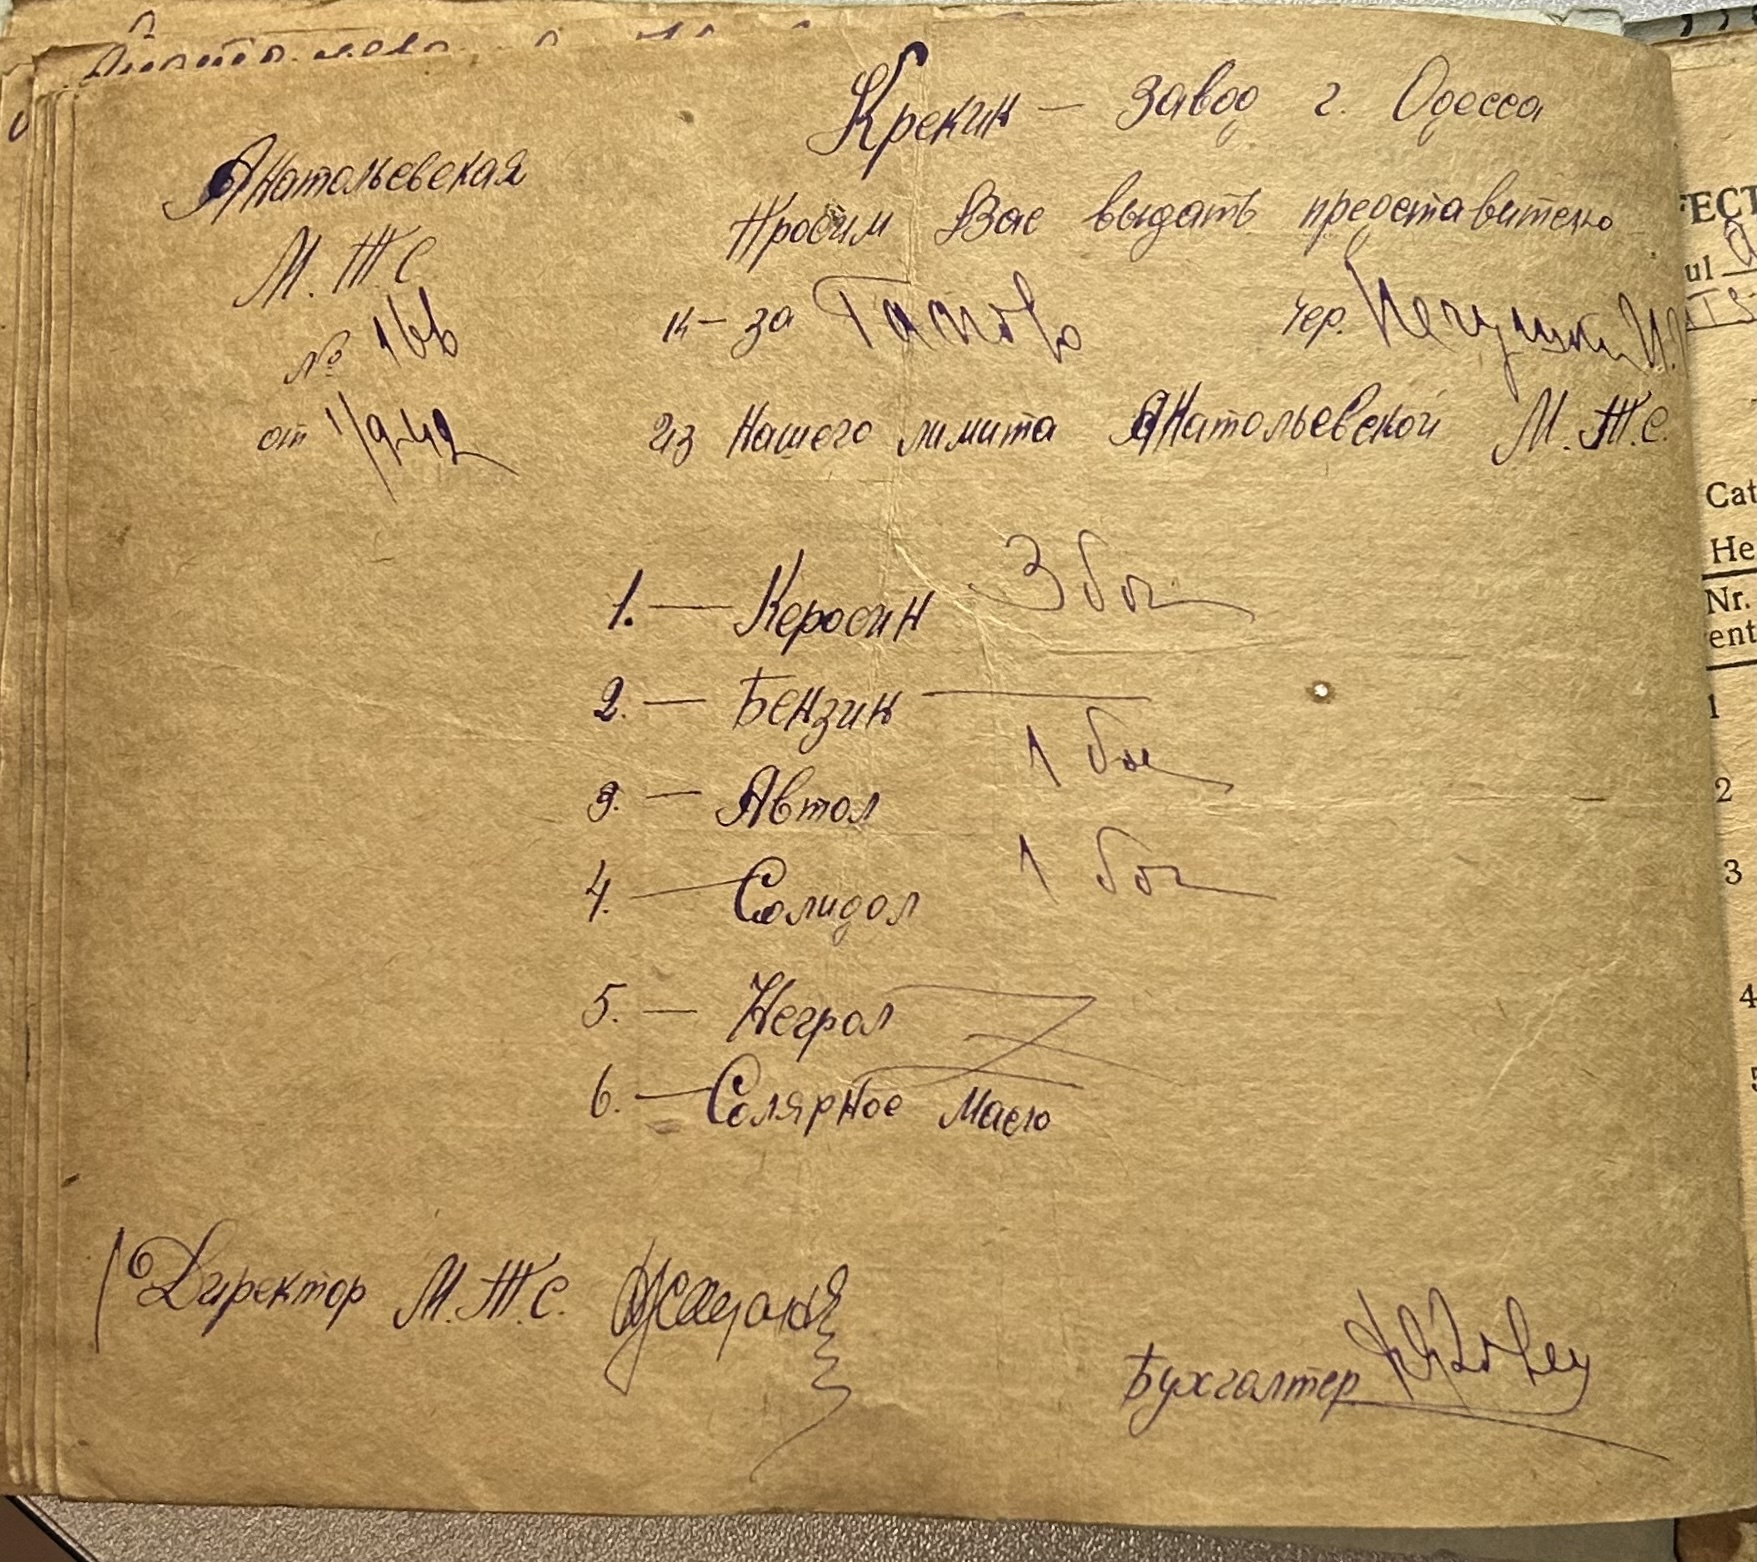 Крекин - завод г. Одесса
Анатольевская
М.Т.С.
№ 166
от 1/9-42
Просим Вас выдать представителю
к-за чер.
из нашего лимита Анатольевской М.Т.С.
1. — Керосин 3 боч
2. — Бензин —
3. — Автол 1 боч
4. — Солидол 1 боч
5. — Негрол
6. — Солярное масло
Директор М.Т.С.
Бухгалтер
FECT
ul
Cat
He
Nr.
ent
1
2
3
4
5